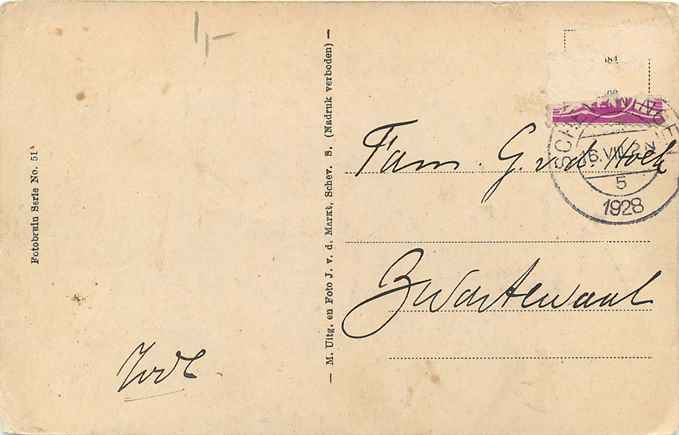 1,-
Fotobruin Serie No. 51
— M. Uitg. en Foto J. v. d. Markt, Schev. S. (Nadruk verboden) —
SCHEVENINGEN
6.VIII 2.N
5
1928
Fam. G. v.d. Hoek
Zwartewaal